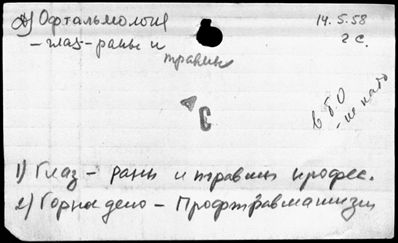 а) Офтальмология
– глаз – раны и
травмы
14.5.58
2 с.
в б.О
– не надо
С
1) Глаз – раны и травмы профес.
2) Горное дело – Профтравматизм